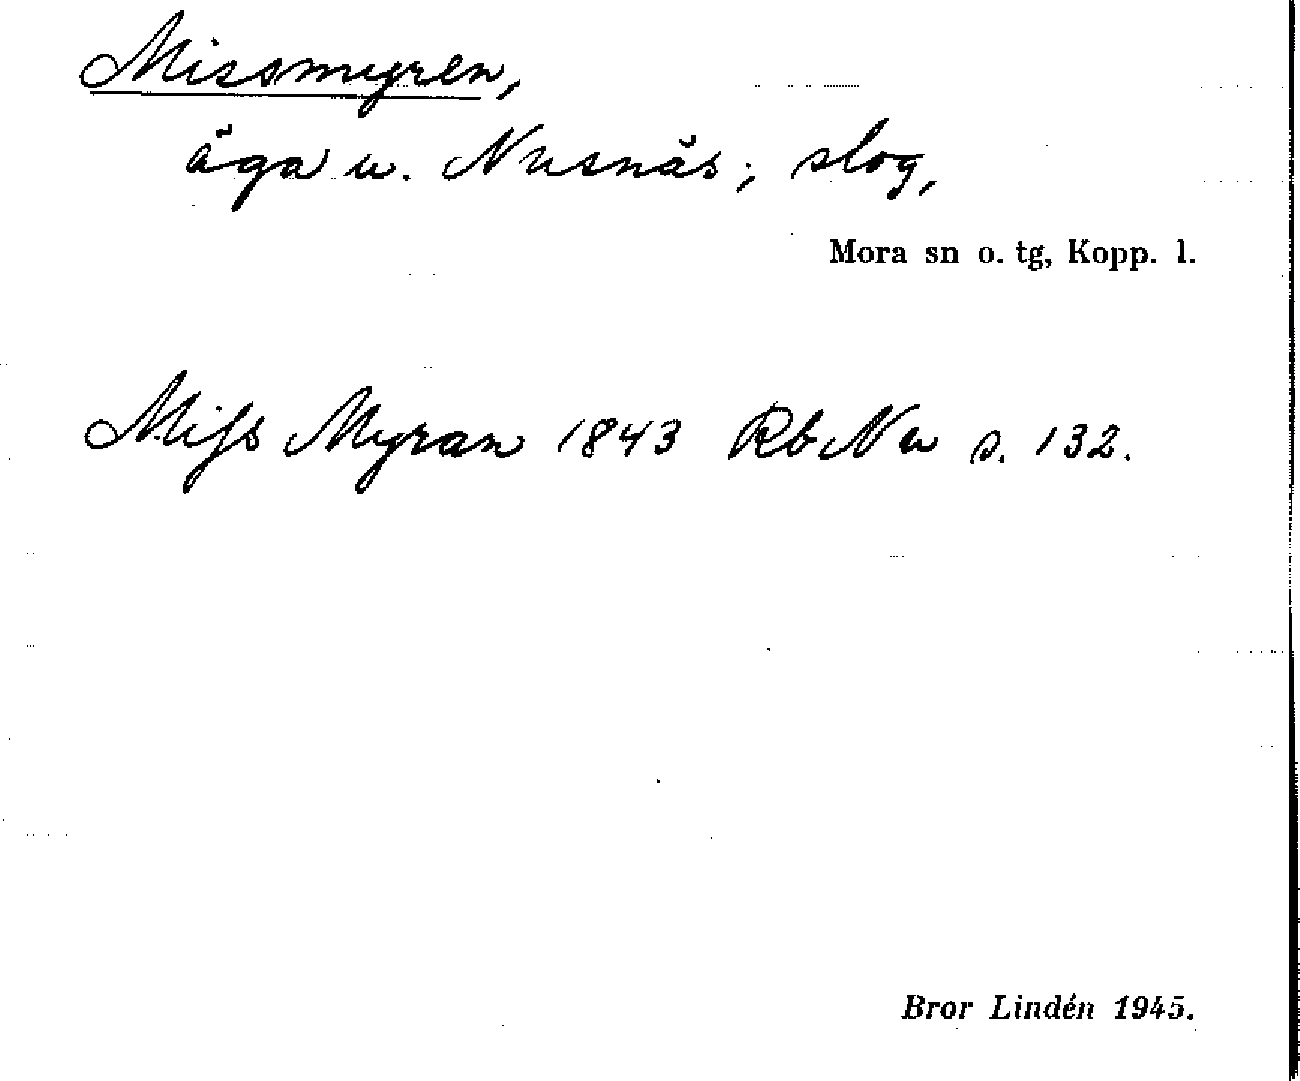 Missmyren,
äga u. Nusnäs; slog,
Mora sn o. tg, Kopp. l.
Miss Myran 1843 Rb Nu s. 132.
Bror Lindén 1945.